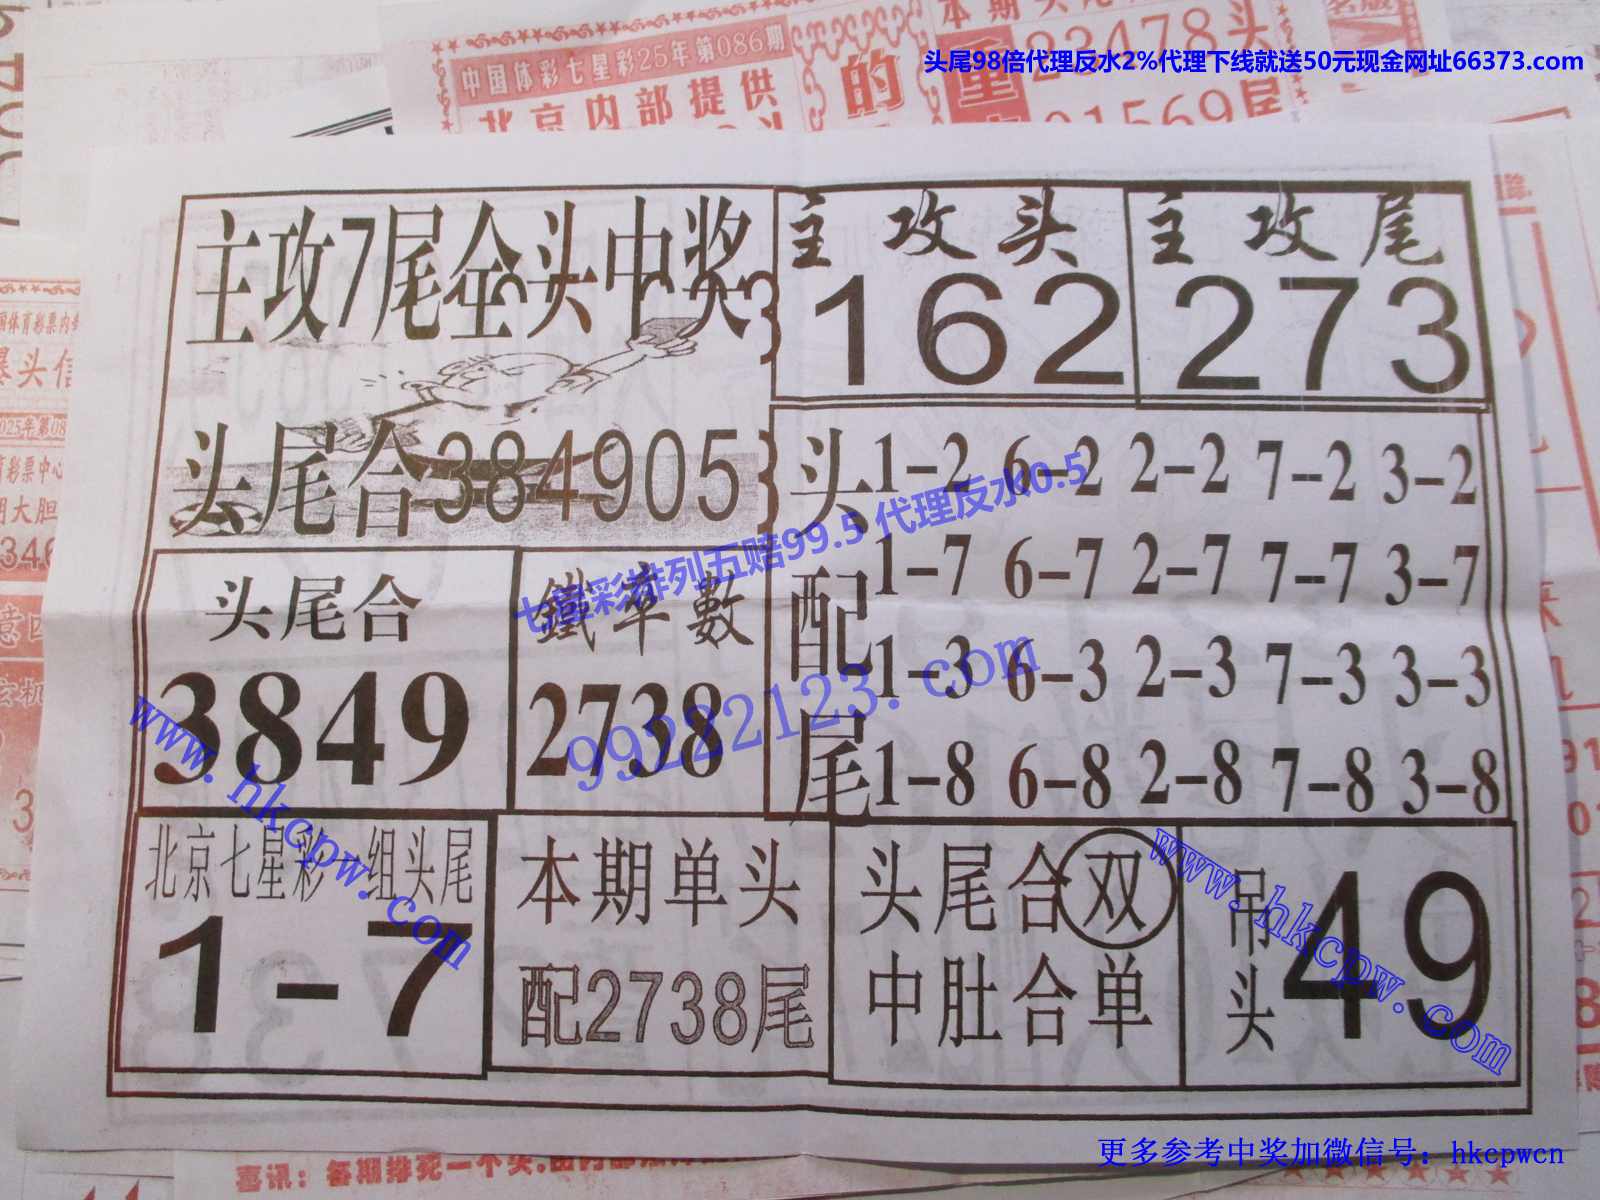 中国体彩七星彩25年第086期
北京内部提供
的
头尾98倍代理反水2%代理下线就送50元现金网址66373.com
主攻7尾全头中奖
头尾合384905
主攻头
162
主攻尾
273
头配尾
1-2 6-2 2-2 7-2 3-2
1-7 6-7 2-7 7-7 3-7
1-3 6-3 2-3 7-3 3-3
1-8 6-8 2-8 7-8 3-8
七星彩排列五赔99.5 代理反水0.5
99222123.com
头尾合
3849
鐵率數
2738
www.hkcpw.com
北京七星彩一组头尾
1-7
本期单头
配2738尾
头尾合双
中肚合单
吊头
49
www.hkcpw.com
更多参考中奖加微信号：hkcpwcn